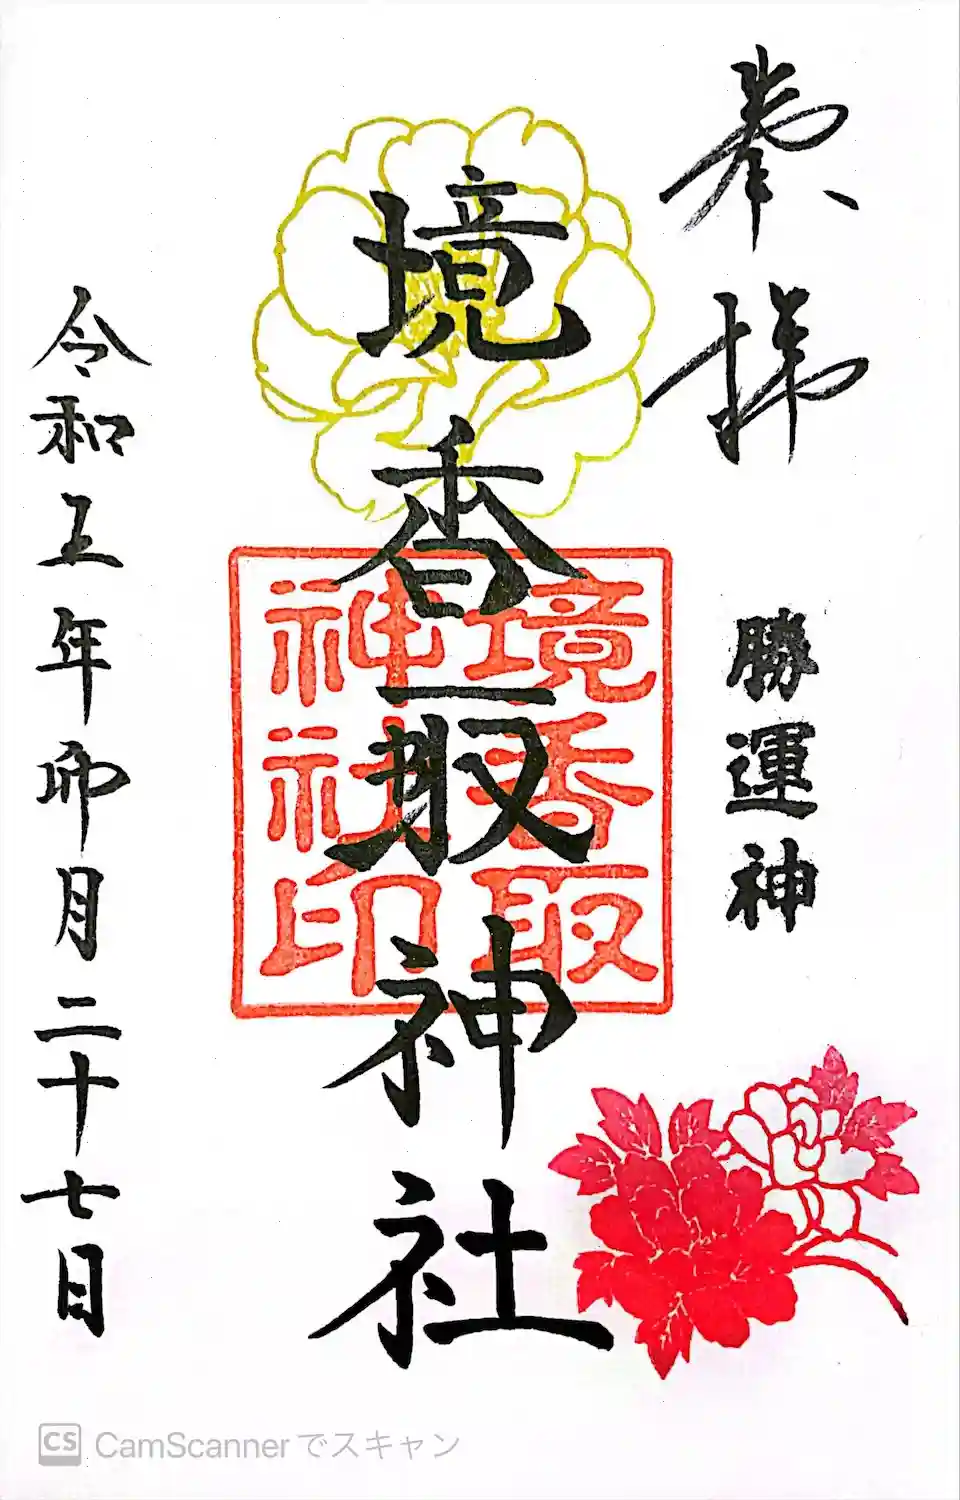 奉拝
勝運神
境香取神社
境香取
神社印
令和五年卯月二十七日
CS CamScannerでスキャン